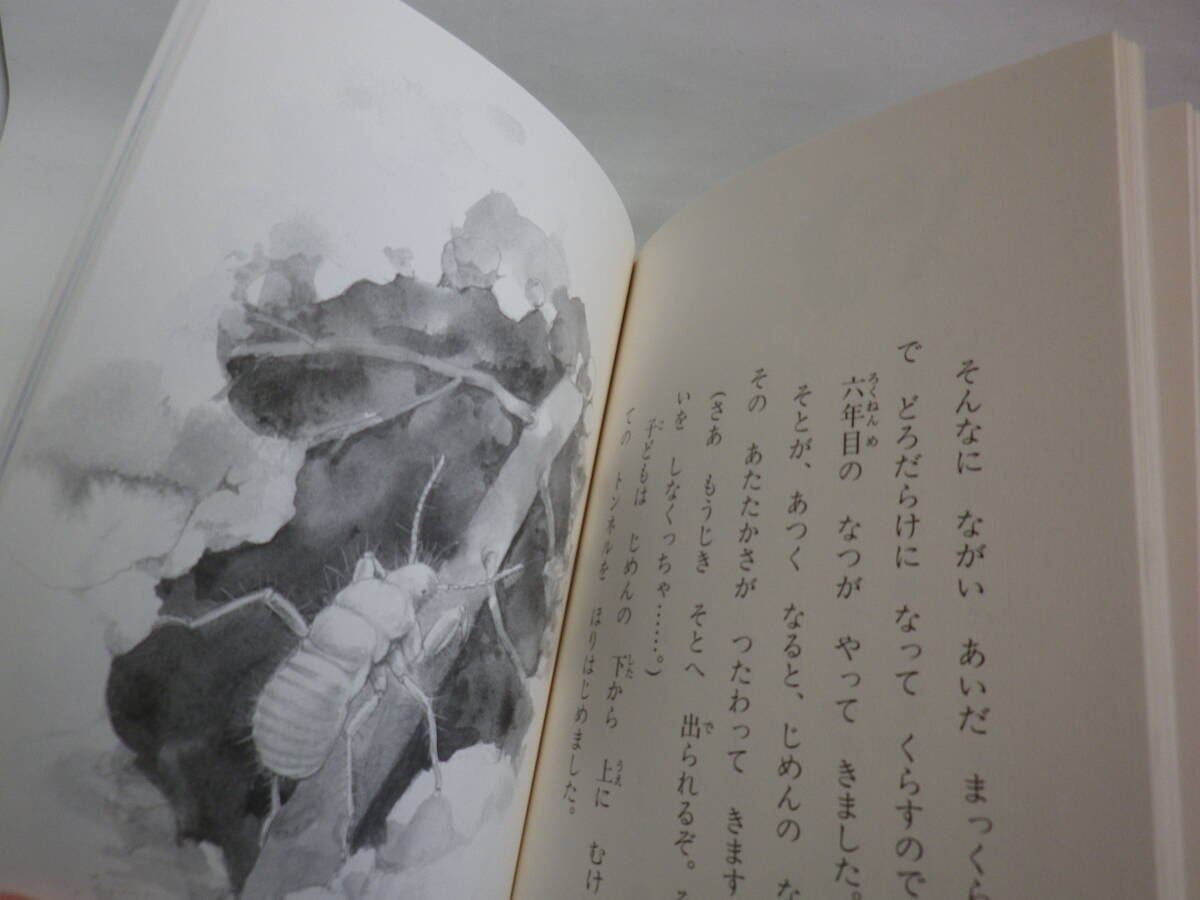 そんなに ながい あいだ まっくら
で どろだらけに なって くらすので
六年目の なつが やって きました。
そとが、あつく なると、じめんの な
その あたたかさが つたわって きます
(さあ もうじき そとへ 出られるぞ。
いを しなくっちゃ……。)
子どもは じめんの 下から 上に むけ
ての トンネルを ほりはじめました。